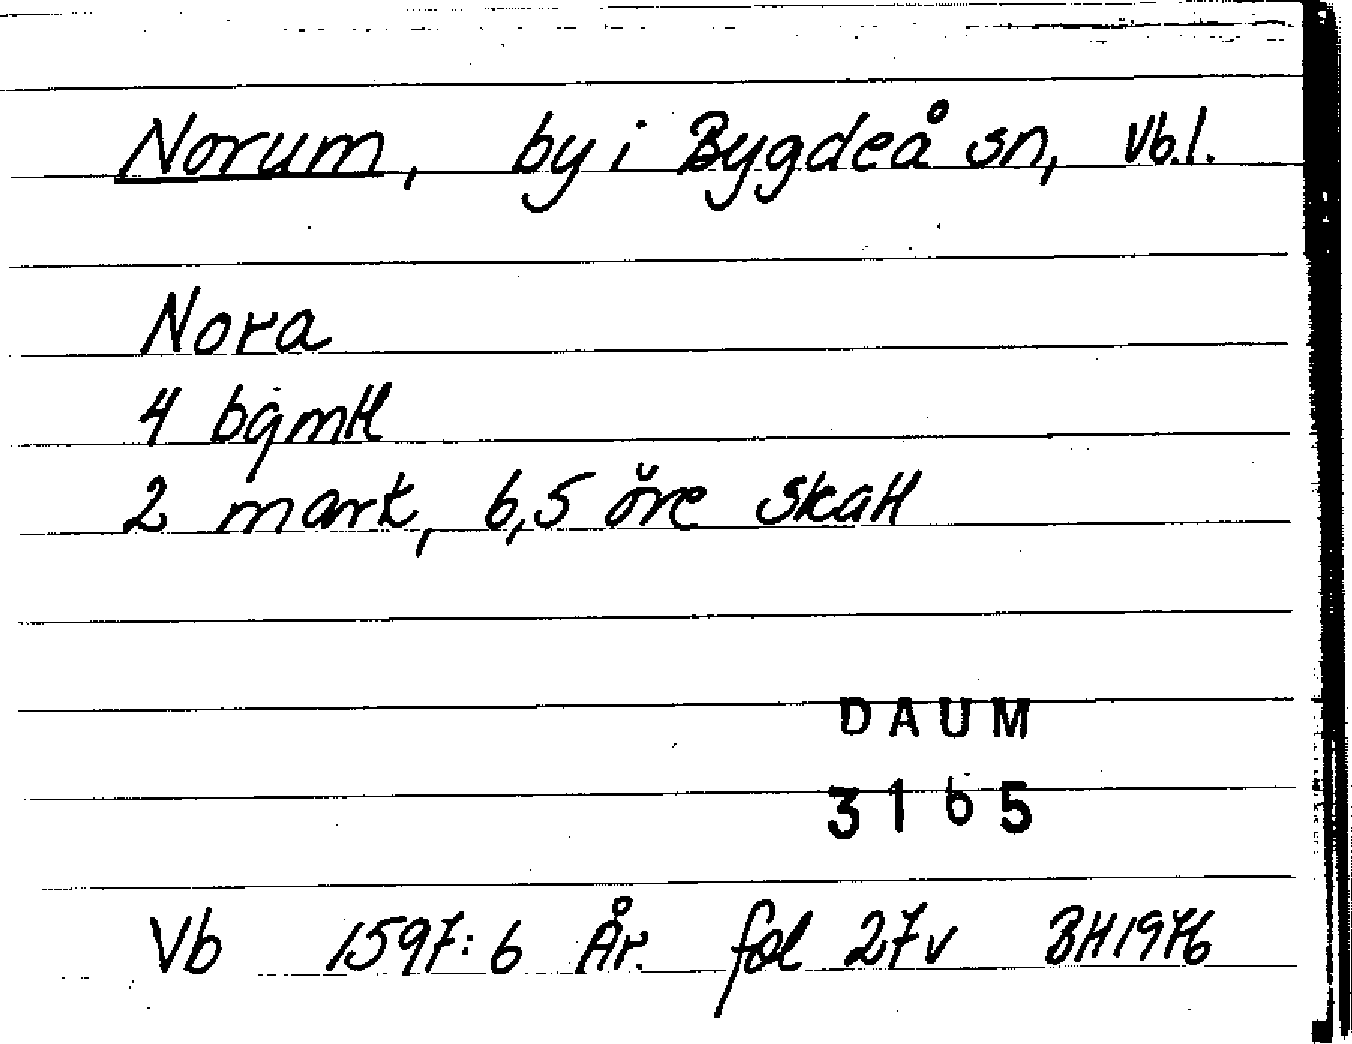 Norum, by i Bygdeå sn, Vb.l.
Nora
4 bgmtl
2 mark, 6,5 öre skatt
DAUM
3165
Vb 1597:6 År. fol 27v BH1976